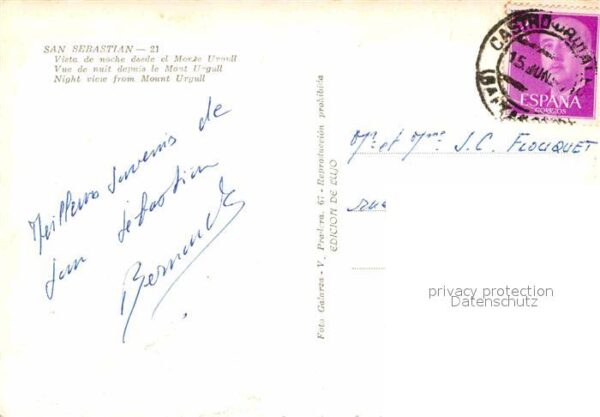 SAN SEBASTIAN — 21
Vista de noche desde el Monte Urgull
Vue de nuit depuis le Mont Urgull
Night view from Mount Urgull
Meilleurs souvenirs de
San Sébastian
Foto Galarza - V. Pradera, 67 - Reproducción prohibida
EDICION DE LUJO
CASTRO URDIAL
15 JUN
ESPAÑA
CORREOS
Mr et Mme J.C. FLOUQUET
rue
privacy protection
Datenschutz